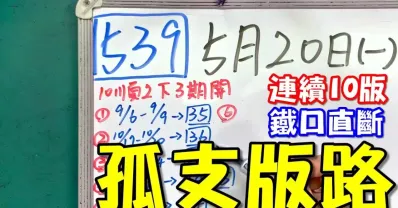 539 5月20日(一)
10順2下3期開
連續10版
鐵口直斷
① 9/6-9/9→35 ⑥
孤支版路